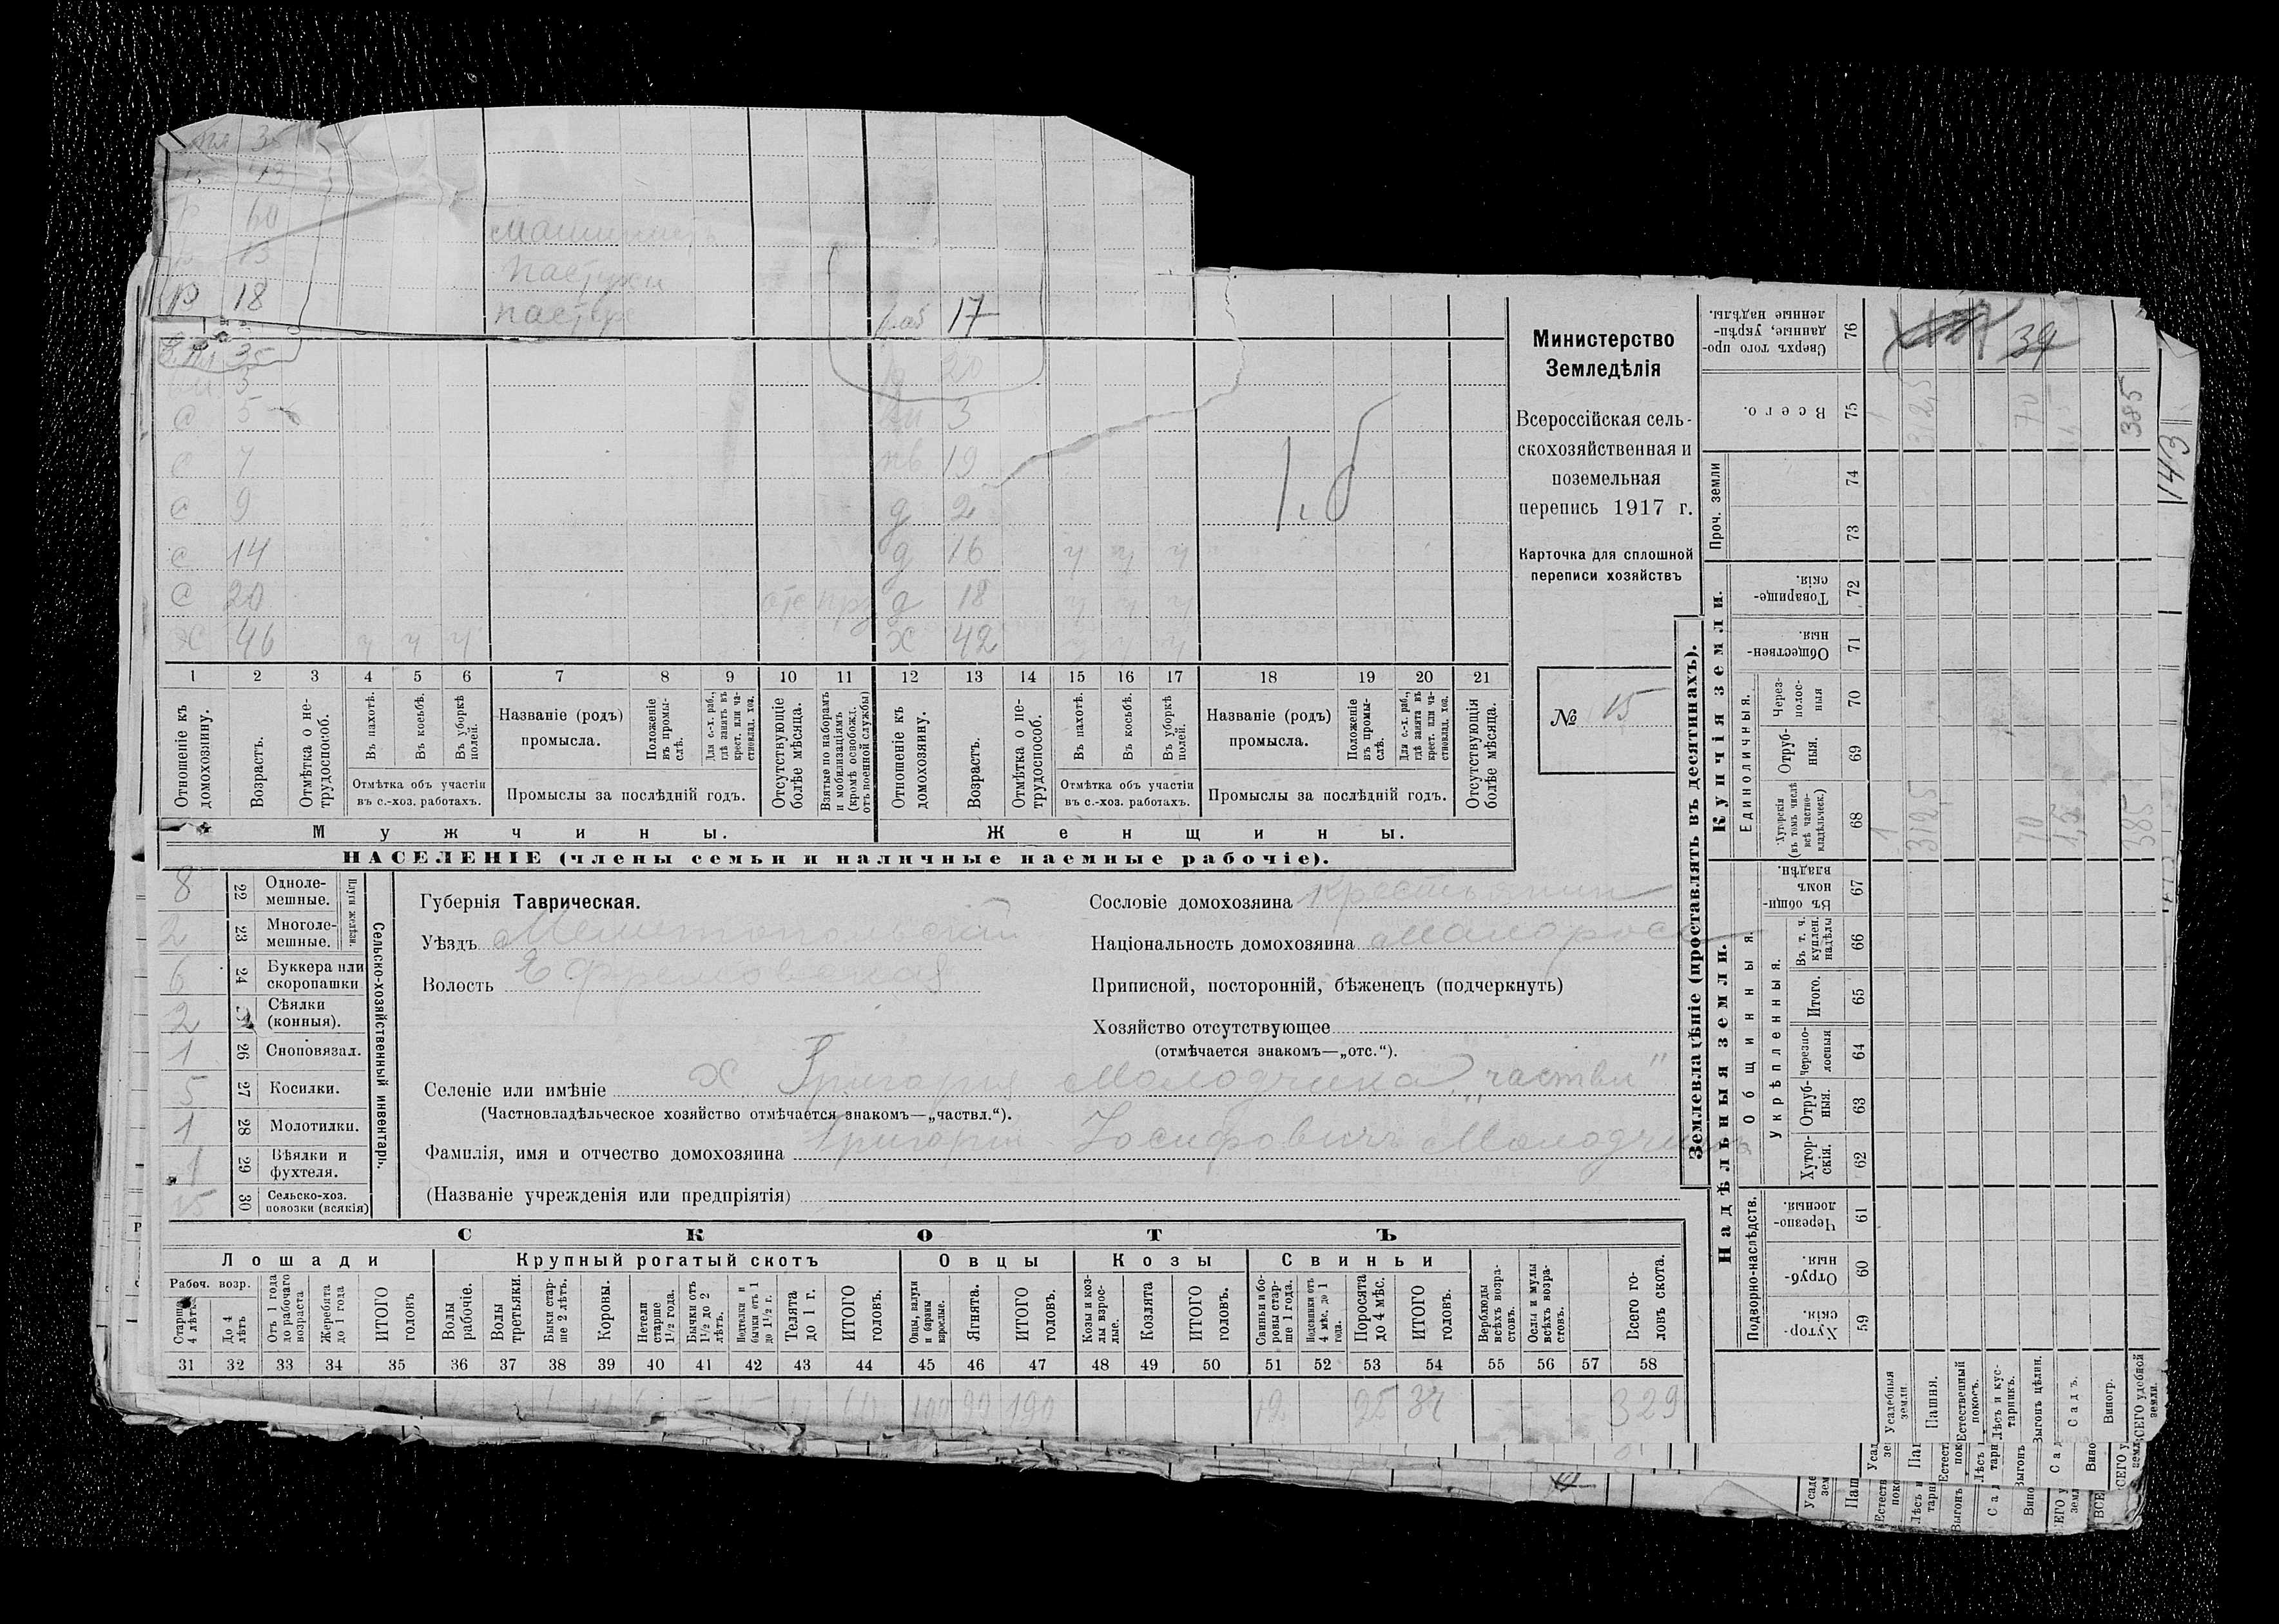 35
43
р 60
13
р 18
пастухи
пастух
раб 17
пл 35
3
р 20
с 5
3
с 7
пв 19
с 9
д 2
с 14
д 16 ч ч ч
с 20
д 18 ч ч ч
х 46 ч ч ч
х 42 ч ч ч
1.б
1 2 3 4 5 6 7 8 9 10 11 12 13 14 15 16 17 18 19 20 21
Отношеніе къ домохозяину.
Возрастъ.
Отмѣтка о не-трудоспособ.
Въ пахотѣ.
Въ косьбѣ.
Въ уборкѣ полей.
Отмѣтка объ участіи въ с.-хоз. работахъ.
Названіе (родъ) промысла.
Положеніе въ промы-слѣ.
Для с.-х. раб., гдѣ занятъ въ крест. или ча-стновлад. хоз.
Промыслы за послѣдній годъ.
Отсутствующіе болѣе мѣсяца.
Взятые по наборамъ и мобилизаціямъ (кромѣ освобожд. отъ военной службы)
Отношеніе къ домохозяину.
Возрастъ.
Отмѣтка о не-трудоспособ.
Въ пахотѣ.
Въ косьбѣ.
Въ уборкѣ полей.
Отмѣтка объ участіи въ с.-хоз. работахъ.
Названіе (родъ) промысла.
Положеніе въ промы-слѣ.
Для с.-х. раб., гдѣ занята въ крест. или ча-стновлад. хоз.
Промыслы за послѣдній годъ.
Отсутствующія болѣе мѣсяца.
Мужчины.
Женщины.
НАСЕЛЕНІЕ (члены семьи и наличные наемные рабочіе).
Министерство
Земледѣлія
Всероссійская сель-
скохозяйственная и
поземельная
перепись 1917 г.
Карточка для сплошной
переписи хозяйствъ
№ 15
8 22 Одноле-мешные.
2 23 Многоле-мешные.
Плуги желѣзн.
6 24 Буккера или скоропашки
2 25 Сѣялки (конныя).
1 26 Сноповязал.
5 27 Косилки.
1 28 Молотилки.
1 29 Вѣялки и фухтеля.
15 30 Сельско-хоз. повозки (всякія)
Сельско-хозяйственный инвентарь.
Губернія Таврическая.
Уѣздъ Мелитопольскій
Волость Ефремовская
Сословіе домохозяина крестьянин
Національность домохозяина малоросс
Приписной, посторонній, бѣженецъ (подчеркнуть)
Хозяйство отсутствующее
(отмѣчается знакомъ—„отс.“).
Селеніе или имѣніе х. Григорія Молодчика „частвл“
(Частновладѣльческое хозяйство отмѣчается знакомъ—„частвл.“).
Фамилія, имя и отчество домохозяина Григорій Іосифовичъ Молодчикъ
(Названіе учрежденія или предпріятія)
СКОТЪ
Лошади
Крупный рогатый скотъ
Овцы
Козы
Свиньи
Рабоч. возр.
Старше 4 лѣтъ
До 4 лѣтъ
Отъ 1 года до рабочаго возраста
Жеребята до 1 года
ИТОГО головъ
Волы рабочіе.
Волы третьяки.
Быки стар-ше 2 лѣтъ.
Коровы.
Нетели старше 1½ года.
Бычки отъ 1½ до 2 лѣтъ.
Подтелки и бычки отъ 1 до 1½ г.
Телята до 1 г.
ИТОГО головъ.
Овцы, валухи и бараны взрослые.
Ягнята.
ИТОГО головъ.
Козы и коз-лы взрос-лые.
Козлята
ИТОГО головъ.
Свиньи и бо-ровы стар-ше 1 года.
Подсвинки отъ 4 мѣс. до 1 года.
Поросята до 4 мѣс.
ИТОГО головъ.
Верблюды всѣхъ возра-стовъ.
Ослы и мулы всѣхъ возра-стовъ.
Всего го-ловъ скота.
31 32 33 34 35 36 37 38 39 40 41 42 43 44 45 46 47 48 49 50 51 52 53 54 55 56 57 58
60 100 90 190 12 25 37 329
Землевладѣніе (проставлять въ десятинахъ).
Надѣльныя земли.
Купчія земли.
Проч. земли
Подворно-наслѣдств.
Общинныя.
Укрѣпленныя.
Единоличныя.
Хутор-скія. 59
Отруб-ныя. 60
Черезпо-лосныя. 61
Хутор-скія. 62
Отруб-ныя. 63
Черезпо-лосныя 64
Итого. 65
Въ т. ч. куплен. надѣлы 66
Въ общи-номъ владѣн. 67
Хуторскія (въ томъ числѣ всѣ частно-владѣльческ.) 68
Отруб-ныя. 69
Через-полос-ныя 70
Обществен-ныя. 71
Товарище-скія. 72
73
74
Всего. 75
Сверхъ того про-данные, укрѣп-ленные надѣлы. 76
Усадебныя земли. 1 1
Пашня. 312,5 312,5
Естественный покосъ.
Лѣсъ и кус-тарникъ.
Выгонъ цѣлин. 70 70
Садъ. 1,5 1,5
Виногр.
ВСЕГО удобной земли. 385 385
39
143